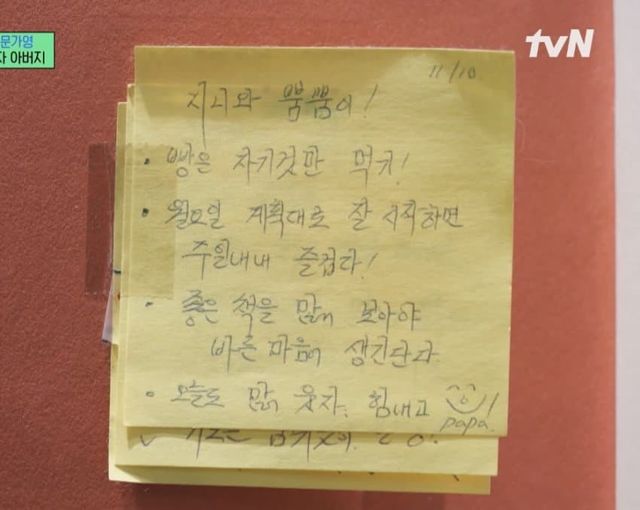 문가영
자 아버지
tvN
11/10
지니와 뿜뿜이!
• 빵은 자기것만 먹기!
• 월요일 계획대로 잘 시작하면
주일내내 즐겁다!
• 좋은 책을 많이 보아야
바른 마음이 생긴단다.
• 오늘도 많이 웃자. 힘내고
papa.